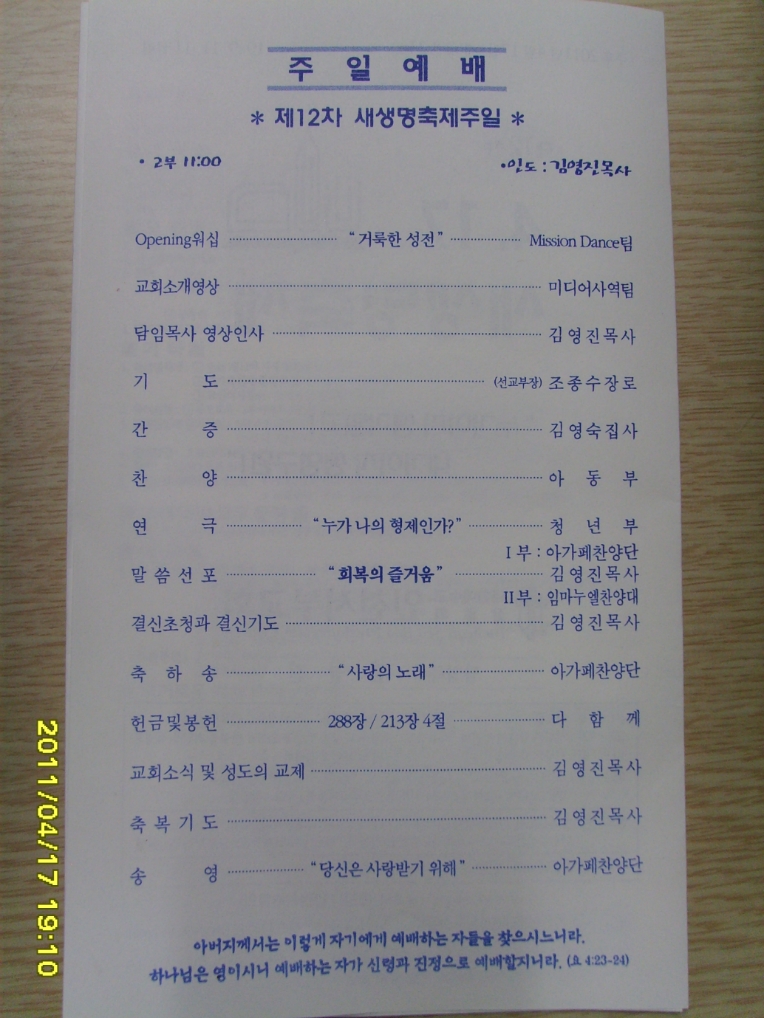 주 일 예 배
* 제12차 새생명축제주일 *
• 2부 11:00 •인도 : 김영진목사
Opening워십 “거룩한 성전” Mission Dance팀
교회소개영상 미디어사역팀
담임목사 영상인사 김영진목사
기 도 (선교부장) 조종수장로
간 증 김영숙집사
찬 양 아 동 부
연 극 “누가 나의 형제인가?” 청 년 부
I 부 : 아가페찬양단
말씀선포 “회복의 즐거움” 김영진목사
II부 : 임마누엘찬양대
결신초청과 결신기도 김영진목사
축 하 송 “사랑의 노래” 아가페찬양단
헌금및봉헌 288장 / 213장 4절 다 함 께
교회소식 및 성도의 교제 김영진목사
축복기도 김영진목사
송 영 “당신은 사랑받기 위해” 아가페찬양단
아버지께서는 이렇게 자기에게 예배하는 자들을 찾으시느니라.
하나님은 영이시니 예배하는 자가 신령과 진정으로 예배할지니라. (요 4:23-24)
2011/04/17 19:10